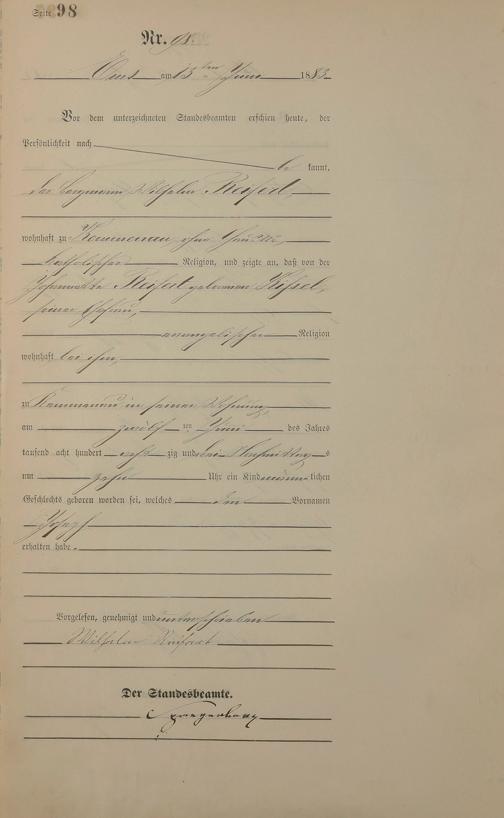 Seite 98
Nr. 98.
Ems am 13ten Juni 1883.
Vor dem unterzeichneten Standesbeamten erschien heute, der
Persönlichkeit nach
be kannt,
der Bergmann Wilhelm Reifert,
wohnhaft zu Kemmenau
katholischer Religion, und zeigte an, daß von der
Reifert geborenen
seiner Ehefrau,
evangelischer Religion
wohnhaft bei ihm,
zu Kemmenau in seiner Wohnung,
am zwölf ten Juni des Jahres
tausend acht hundert acht zig und drei Nachmittags
um zehn Uhr ein Kind männlichen
Geschlechts geboren worden sei, welches den Vornamen
Joseph
erhalten habe.
Vorgelesen, genehmigt und unterschrieben
Wilhelm Reifert
Der Standesbeamte.